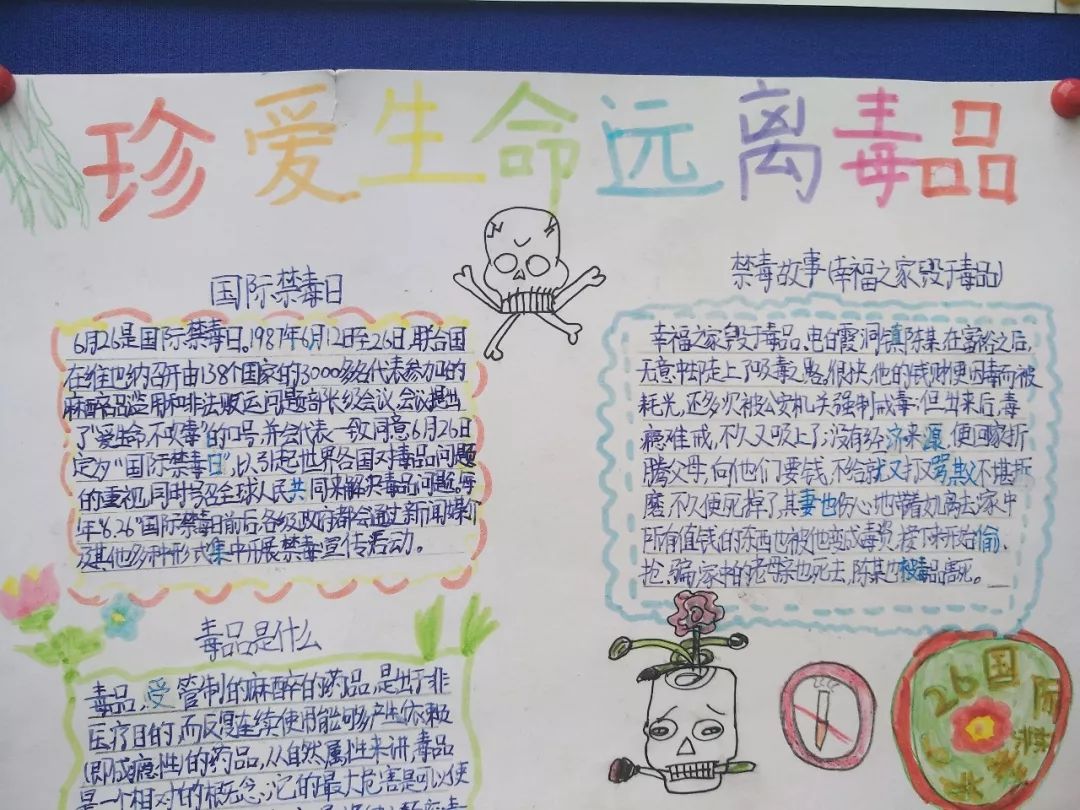 珍爱生命远离毒品
国际禁毒日
6月26是国际禁毒日。1987年6月12日至26日,联合国
在维也纳召开由138个国家的3000多名代表参加的
麻醉品滥用和非法贩运问题部长级会议,会议提出
了“爱生命,不吸毒”的口号,并会代表一致同意6月26日
定为“国际禁毒日”,以引起世界各国对毒品问题
的重视,同时号召全球人民共同来解决毒品问题。每
年“6.26”国际禁毒日前后,各级政府都会通过新闻媒介
及其他多种形式集中开展禁毒宣传活动。
毒品是什么
毒品,受管制的麻醉的药品,是出于非
医疗目的而反复连续使用能够产生依赖
(即成瘾性)的药品,从自然属性来讲,毒品
是一个相对的概念;它的最大危害是可以使
禁毒故事(幸福之家毁于毒品)
幸福之家毁于毒品。电白霞洞镇陈某在富裕之后,
无意中却走上了吸毒之路,很快,他的钱财便因毒而被
耗光,还多次被公安机关强制戒毒;但出来后,毒
瘾难戒,不久又吸上了;没有经济来源,便回家折
腾父母,向他们要钱,不给就又打又骂,其父不堪折
磨,不久便死掉了,其妻也伤心地带着女儿离去;家中
所有值钱的东西也被他变成毒资,接下来开始偷、
抢、骗;家中的老母亲也死去,陈某也被毒品害死。
26国际禁